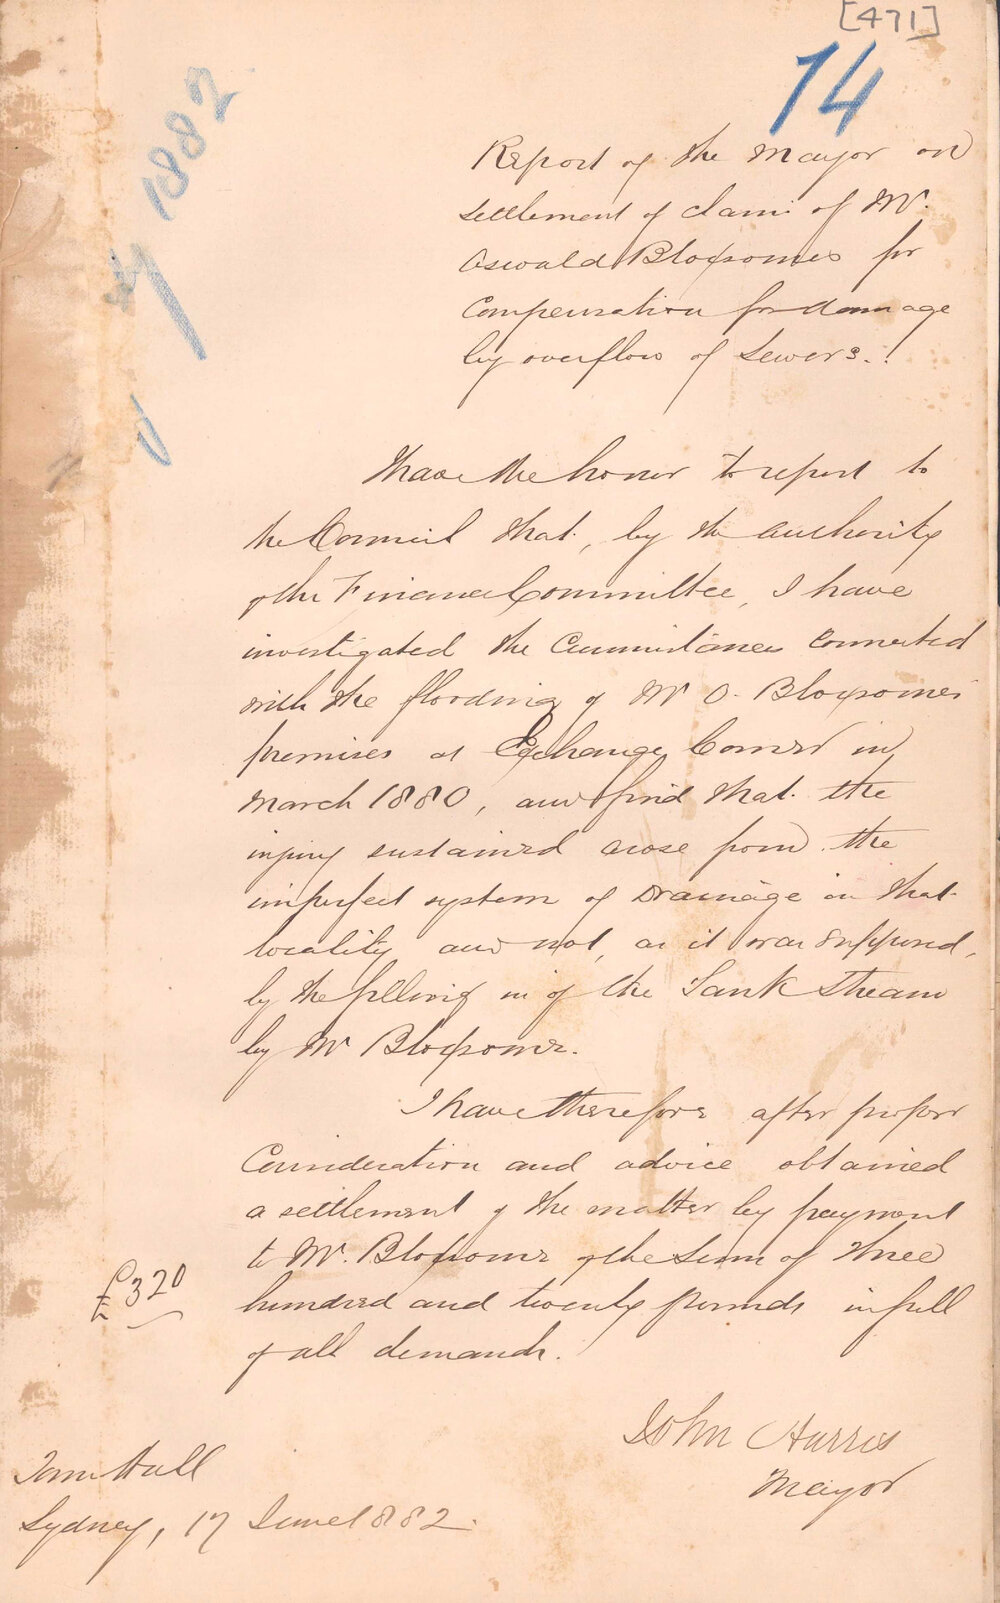 [471]
14
1882
Report of the Mayor on
settlement of claim of Mr.
Oswald Bloxsome for
Compensation for damage
by overflow of Sewers.
I have the honor to report to
the Council that, by the authority
of the Finance Committee, I have
investigated the Circumstances connected
with the flooding of Mr O. Bloxsome's
premises at Exchange Corner in
March 1880, and find that the
injury sustained arose from the
imperfect system of Drainage in that
locality and not, as it was supposed,
by the filling in of the Tank Stream
by Mr Bloxsome.
I have therefore after proper
Consideration and advice obtained
a settlement of the matter by payment
to Mr. Bloxsome of the Sum of Three
hundred and twenty pounds in full
of all demands.
£320
John Harris
Mayor
Town Hall
Sydney, 17 June 1882.